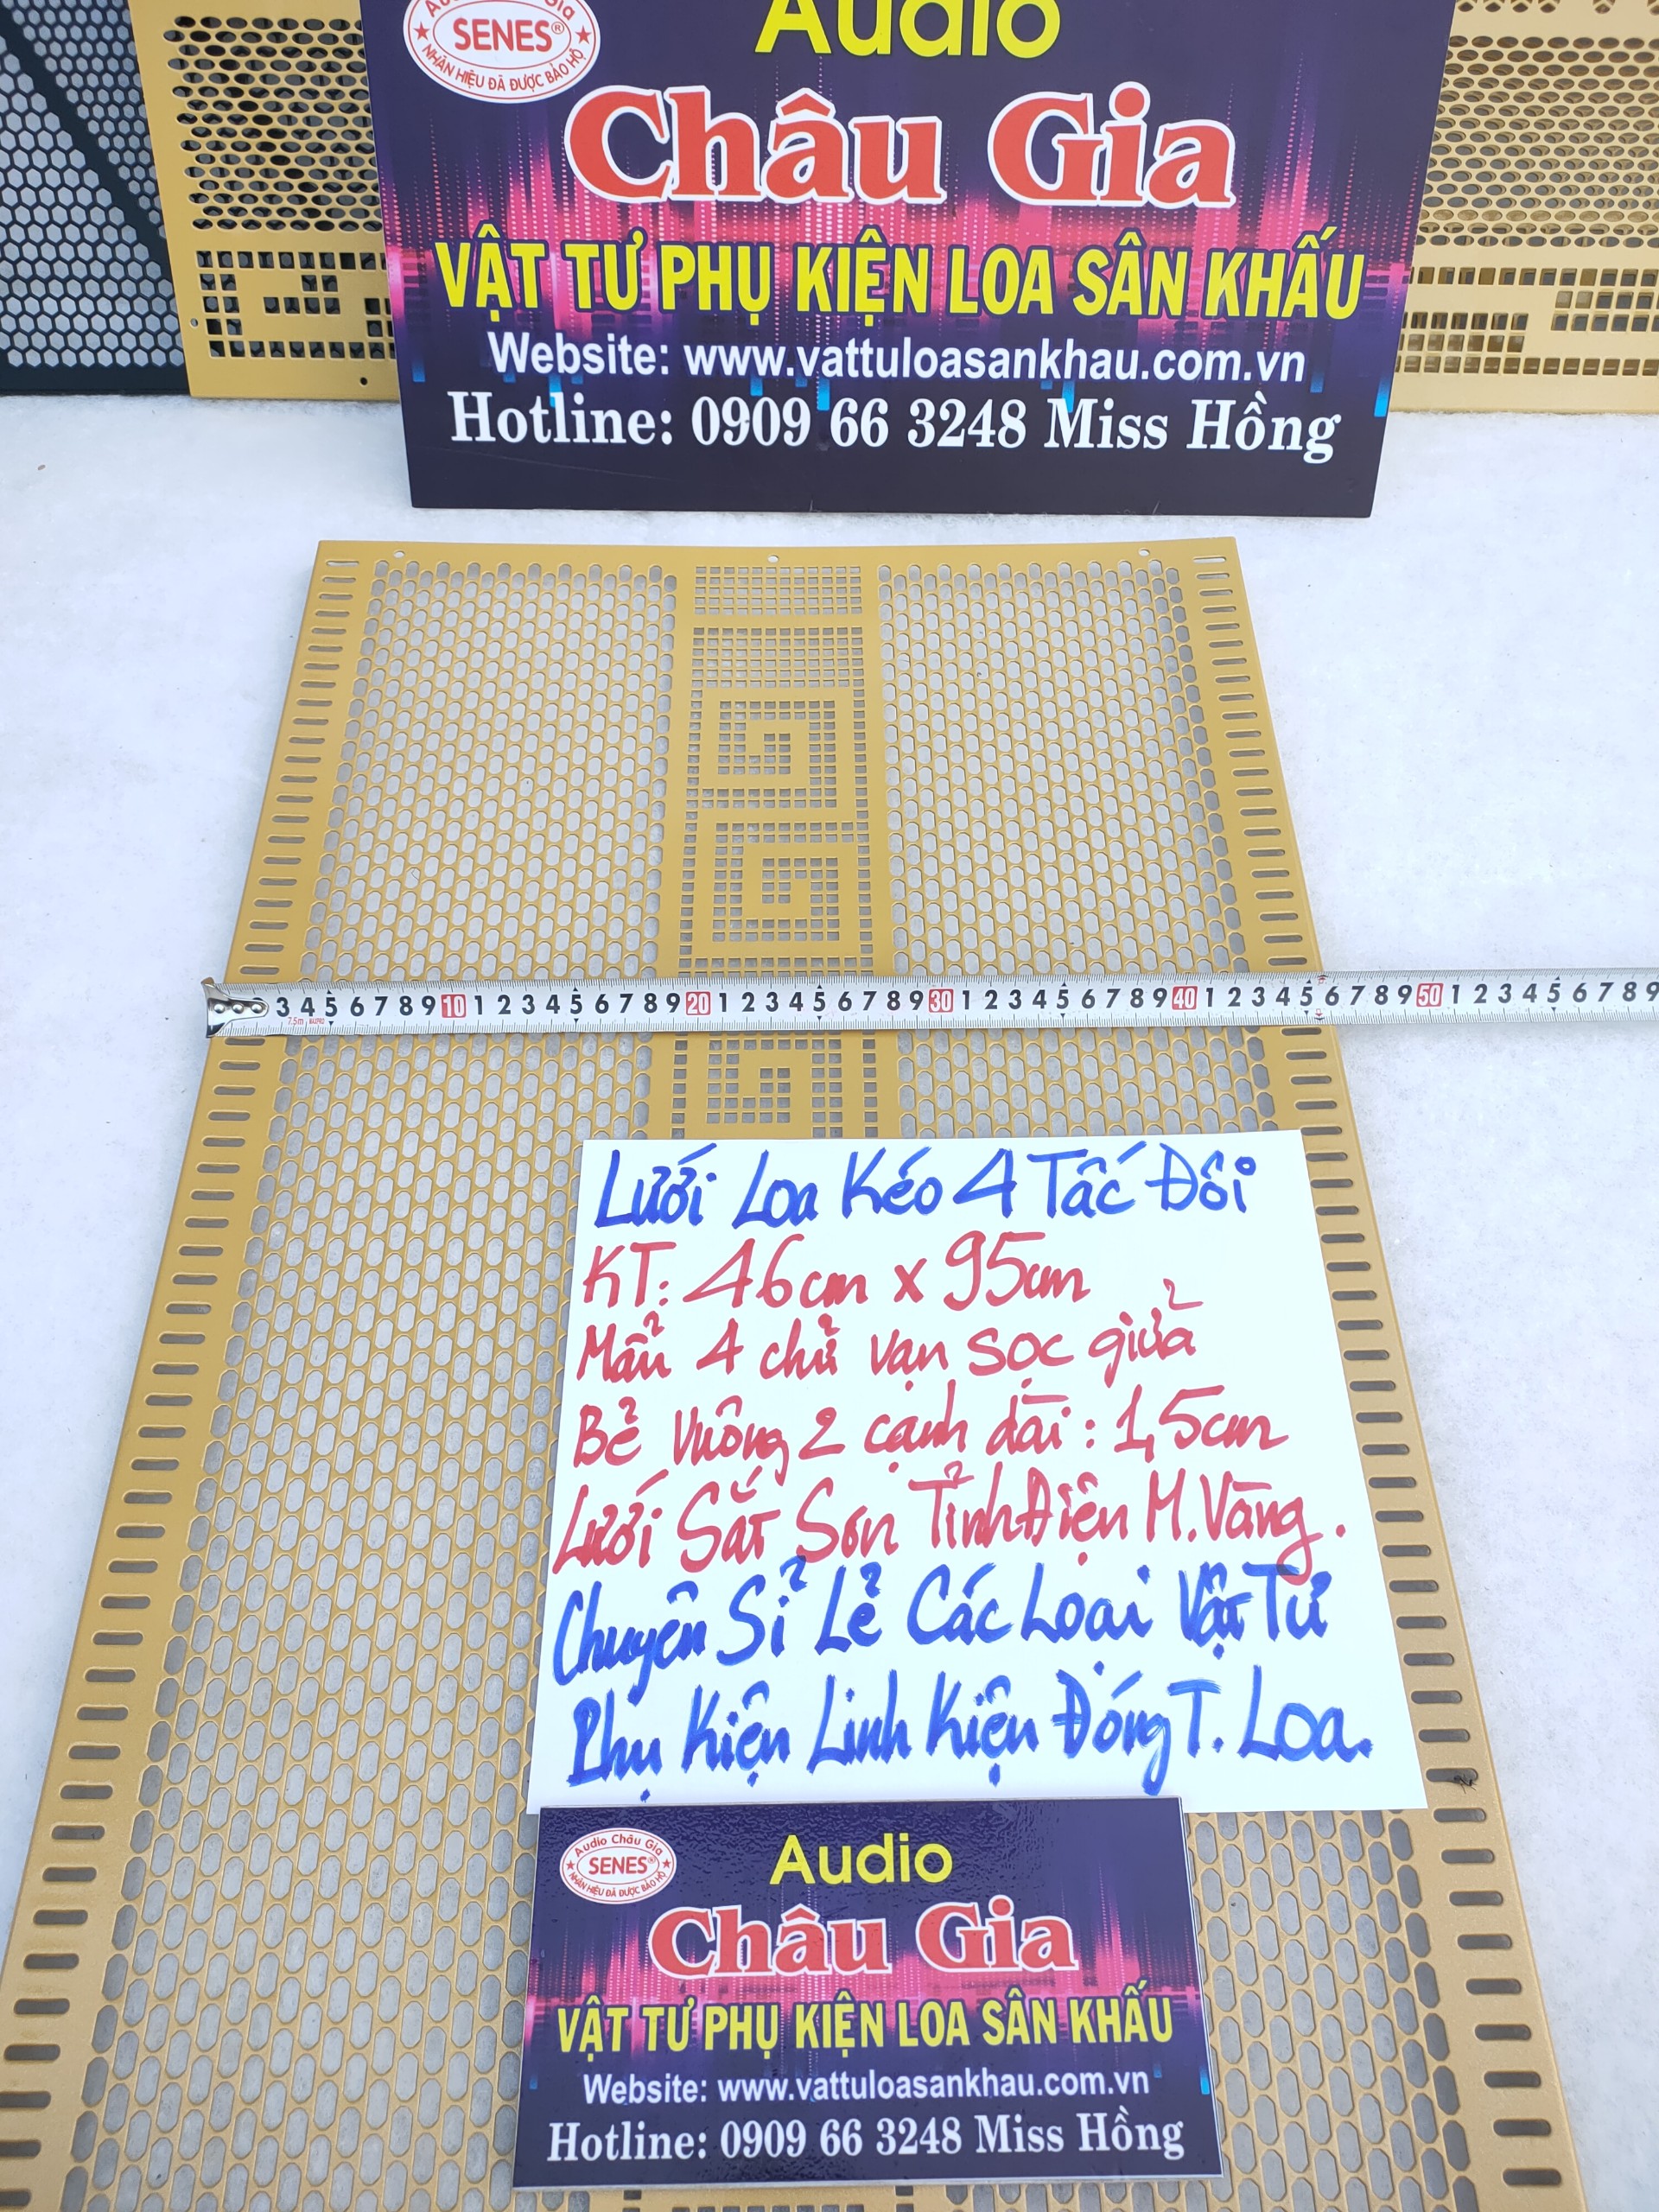 Audio Châu Gia
SENES®
NHÃN HIỆU ĐÃ ĐƯỢC BẢO HỘ
Audio
Châu Gia
VẬT TƯ PHỤ KIỆN LOA SÂN KHẤU
Website: www.vattuloasankhau.com.vn
Hotline: 0909 66 3248 Miss Hồng
3 4 5 6 7 8 9 10 1 2 3 4 5 6 7 8 9 20 1 2 3 4 5 6 7 8 9 30 1 2 3 4 5 6 7 8 9 40 1 2 3 4 5 6 7 8 9 50 1 2 3 4 5 6 7 8 9
7.5m
Lưới Loa Kéo 4 Tấc Đôi
KT: 46cm x 95cm
Mẫu 4 chử vạn sọc giửa
Bẻ Vuông 2 cạnh dài: 1,5cm
Lưới Sắt Sơn Tỉnh Điện M. Vàng.
Chuyên Sỉ Lẻ Các Loại Vật Tư
Phụ Kiện Linh Kiện Đóng T. Loa.
Audio Châu Gia
SENES®
NHÃN HIỆU ĐÃ ĐƯỢC BẢO HỘ
Audio
Châu Gia
VẬT TƯ PHỤ KIỆN LOA SÂN KHẤU
Website: www.vattuloasankhau.com.vn
Hotline: 0909 66 3248 Miss Hồng